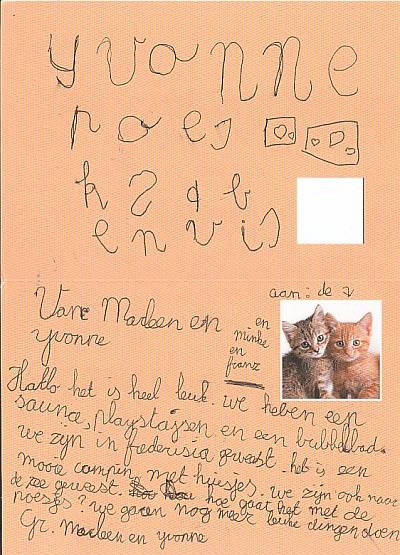 yvonne
poes
k 2 a b
en vis
aan: de
Van Marleen en
yvonne
en
minke
en
franz
Hallo het is heel leuk. we heben een
sauna, playstasjen en een bubbelbad.
we zijn in fredericia geweest. het is een
mooie campin met huisjes. we zijn ook naar
de zee geweest. hoe gaat het met de
poesjes? we gaan nog meer leuke dingen doen
Gr. Marleen en yvonne